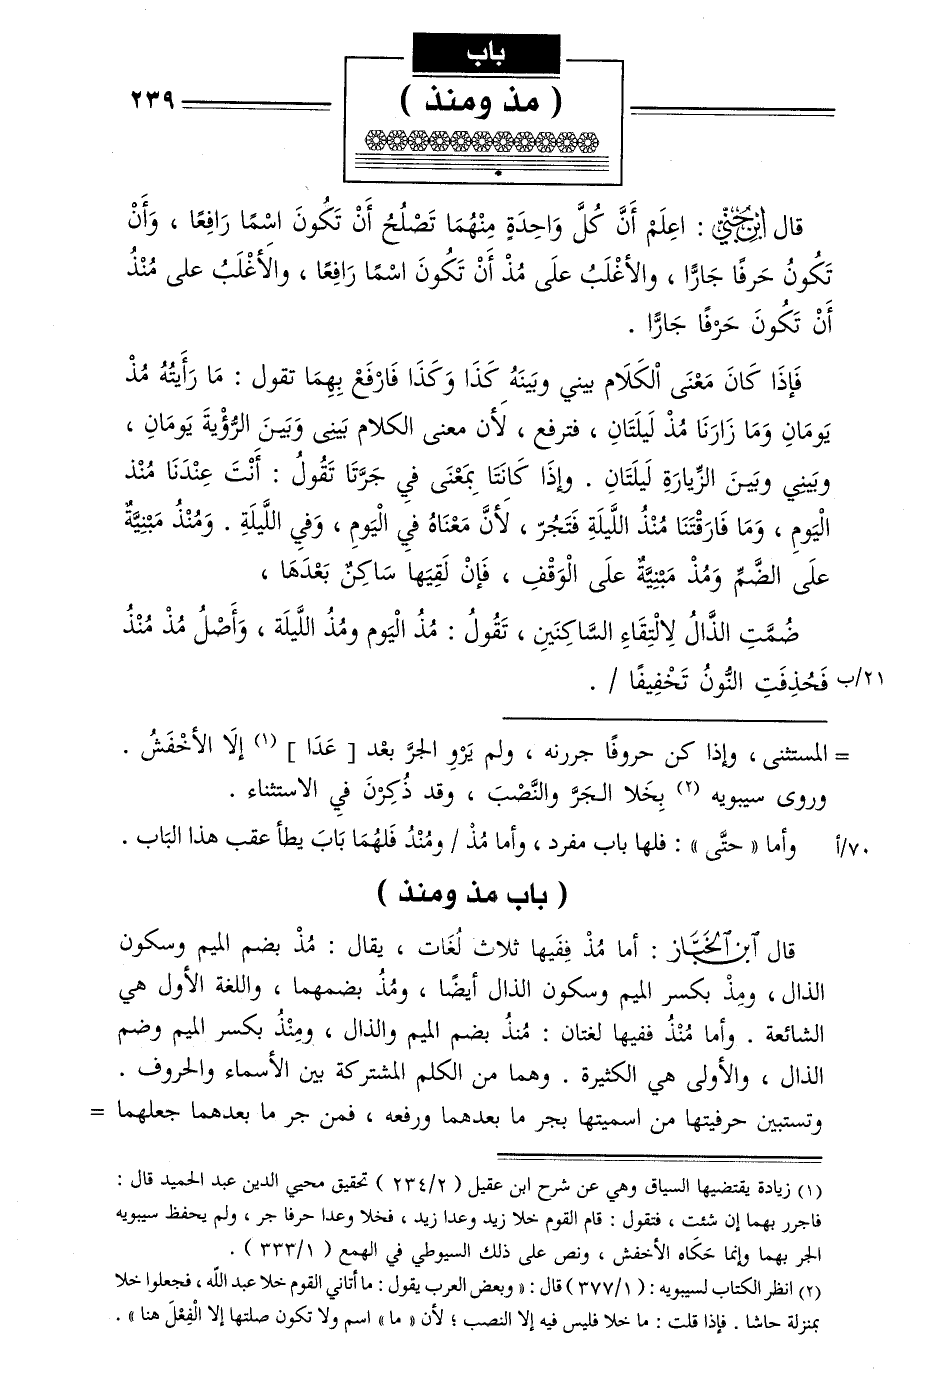 باب
( مذ ومنذ )
٢٣٩
قال ابن جني : اعلَمْ أَنَّ كُلَّ وَاحِدَةٍ مِنْهُمَا تَصْلُحُ أَنْ تَكُونَ اسْمًا رَافِعًا ، وَأَنْ
تَكُونُ حَرفًا جَارًّا ، والأغْلَبُ علَى مُذْ أَنْ تَكُونَ اسْمًا رَافِعًا ، والأَغْلَبُ على مُنْذُ
أَنْ تَكُونَ حَرْفًا جَارًّا .
فَإِذَا كَانَ مَعْنَى الْكَلَام بيني وبَينَهُ كَذَا وَكَذَا فَارْفَعْ بِهِمَا تقول : مَا رَأَيتُهُ مُذْ
يَومَانِ وَمَا زَارَنَا مُذْ لَيلَتَانِ ، فترفع ، لأن معنى الكلام بَينِى وَبَينَ الرُّؤْيةَ يَومَانِ ،
وبَينِي وبَينَ الزِّيارَةِ لَيلَتَانِ . وإذَا كَانَتَا بِمَعْنَى فِي جَرَّتَا تَقُولُ : أَنْتَ عِنْدَنَا مُنْذ
الْيَوم ، وَمَا فَارَقْتَنَا مُنْذُ اللَّيلَةِ فَتَجُرّ ، لأنَّ مَعْنَاهُ في الْيَومِ ، وَفي اللَّيلَةِ . وَمُنْذُ مَبْنِيَّةٌ
علَى الضَّمِّ وَمُذْ مَبْنِيَّةٌ علَى الْوَقْفِ ، فَإِنْ لَقِيَها سَاكِنٌ بَعْدَهَا ،
ضُمَّتِ الذَّالُ لِالْتِقَاءِ السَّاكِنَينِ ، تَقُولُ : مُذُ الْيَوم ومُذُ اللَّيلَة ، وَأَصْلُ مُذْ مُنْذُ
٢١/ب فَحُذِفَتِ النُّونُ تَخْفِيفًا / .
= المستثنى ، وإذا كن حروفًا جررنه ، ولم يَرْوِ الجرَّ بعْد [ عَدَا ] (١) إلَّا الأخْفَشُ .
وروى سيبويه (٢) بِخَلا الـجَرَّ والنَّصْبَ ، وقد ذُكِرْنَ في الاستثناء .
٧٠/أ وأما « حتَّى » : فلها باب مفرد ، وأما مُذْ / ومُنْذُ فَلهُمَا بَابَ يطأ عقب هذا البَاب .
( باب مذ ومنذ )
قال ابن الخباز : أما مُذْ فِفَيها ثلاث لُغَات ، يقال : مُذْ بضم الميم وسكون
الذال ، ومِذْ بكسر الميم وسكون الذال أيضًا ، ومُذُ بضمهما ، واللغة الأول هي
الشائعة . وأما مُنْذُ ففيها لغتان : مُنذُ بضم الميم والذال ، ومِنْذُ بكسر الميم وضم
الذال ، والأولى هي الكثيرة . وهما من الكلم المشتركة بين الأسماء والحروف .
وتستبين حرفيتها من اسميتها بجر ما بعدهما ورفعه ، فمن جر ما بعدهما جعلهما =
(١) زيادة يقتضيها السياق وهي عن شرح ابن عقيل ( ٢٣٤/٢ ) تحقيق محيي الدين عبد الحميد قال :
فاجرر بهما إن شئت ، فتقول : قام القوم خلا زيد وعدا زيد ، فخلا وعدا حرفا جر ، ولم يحفظ سيبويه
الجر بهما وإنما حَكَاه الأخفش ، ونص على ذلك السيوطي في الهمع ( ٣٣٣/١ ) .
(٢) انظر الكتاب لسيبويه : ( ٣٧٧/١ ) قال : « وبعض العرب يقول : ما أتاني القوم خلا عبد اللَّه ، فجعلوا خلا
بمنزلة حاشا . فإذا قلت : ما خلا فليس فيه إلا النصب ؛ لأن « ما » اسم ولا تكون صلتها إلا الْفِعْلَ هنا » .